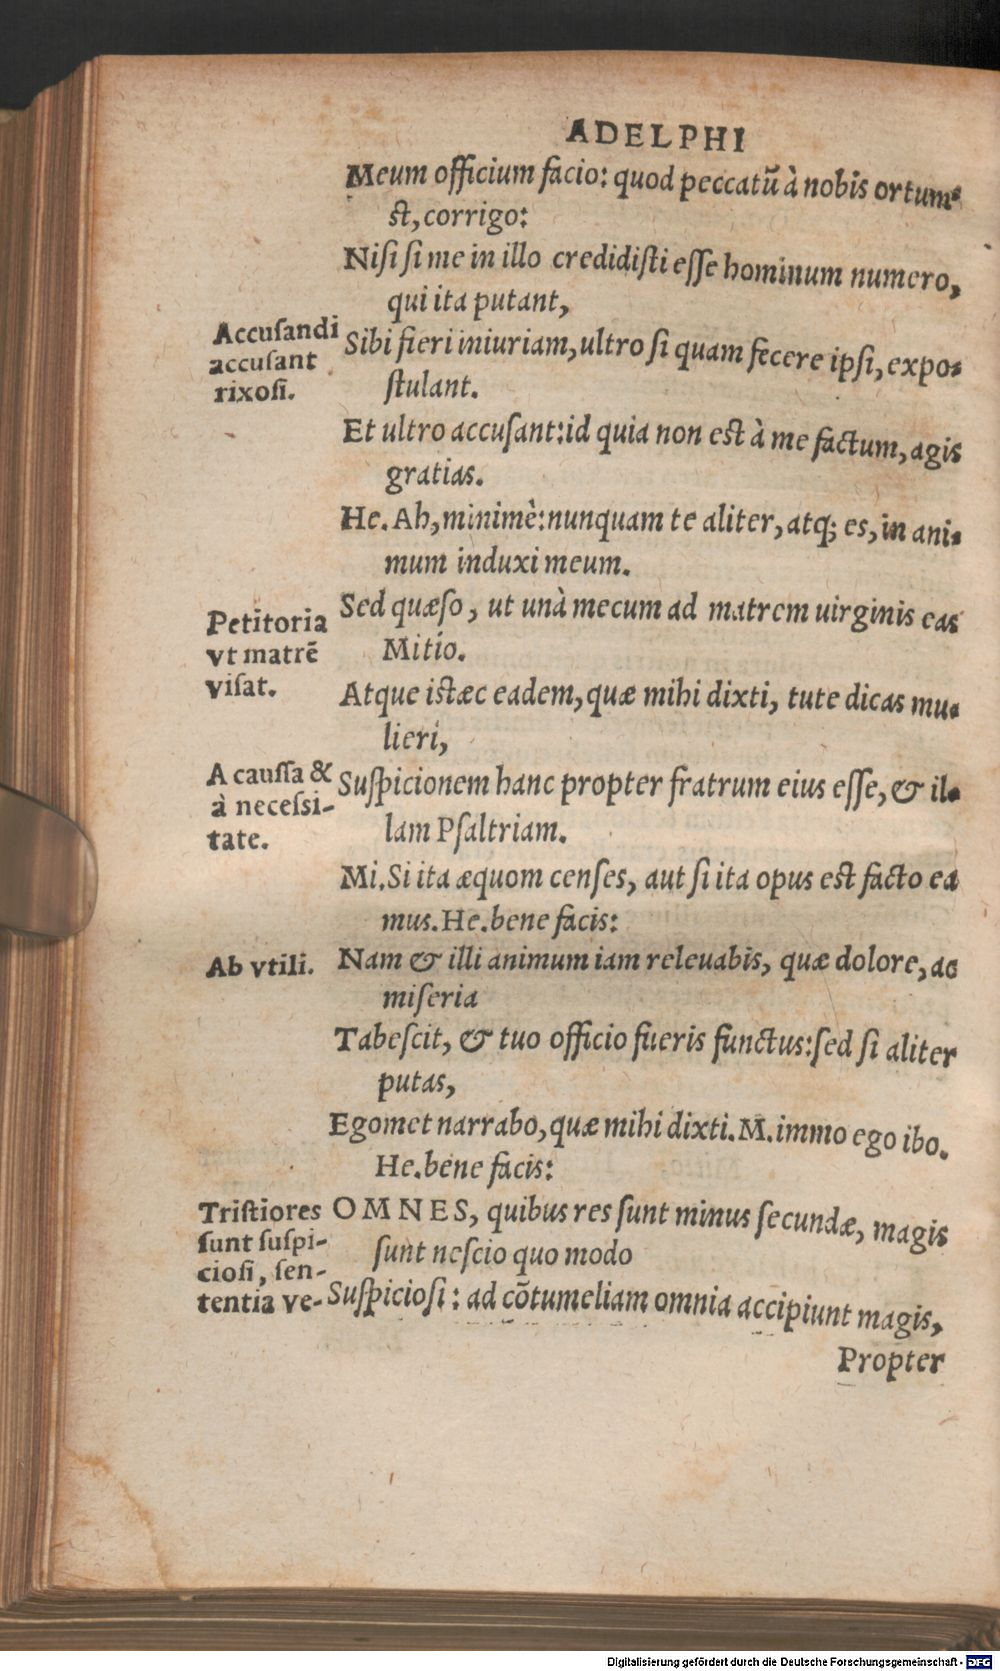 ADELPHI
Meum officium facio: quod peccatũ à nobis ortum
ſt, corrigo:
Niſi ſi me in illo credidiſti eſſe hominum numero,
qui ita putant,
Accuſandi
accuſant
rixoſi.
Sibi fieri iniuriam, ultro ſi quam fecere ipſi, expo-
ſtulant.
Et ultro accuſant: id quia non eſt à me factum, agis
gratias.
He. Ah, minimè: nunquam te aliter, atq; es, in ani-
mum induxi meum.
Petitoria
vt matrē
viſat.
Sed quæſo, ut unà mecum ad matrem uirginis eas
Mitio.
Atque iſtæc eadem, quæ mihi dixti, tute dicas mu-
lieri,
A cauſſa &
à neceſsi-
tate.
Suſpicionem hanc propter fratrum eius eſſe, & il-
lam Pſaltriam.
Mi. Si ita æquom cenſes, aut ſi ita opus eſt facto ea
mus. He. bene facis:
Ab vtili.
Nam & illi animum iam releuabis, quæ dolore, ac
miſeria
Tabeſcit, & tuo officio fueris functus: ſed ſi aliter
putas,
Egomet narrabo, quæ mihi dixti. M. immo ego ibo.
He. bene facis:
Triſtiores
ſunt ſuſpi-
cioſi, ſen-
tentia ve-
OMNES, quibus res ſunt minus ſecundæ, magis
ſunt neſcio quo modo
Suſpicioſi: ad cõtumeliam omnia accipiunt magis,
Propter
Digitalisierung gefördert durch die Deutsche Forschungsgemeinschaft - DFG